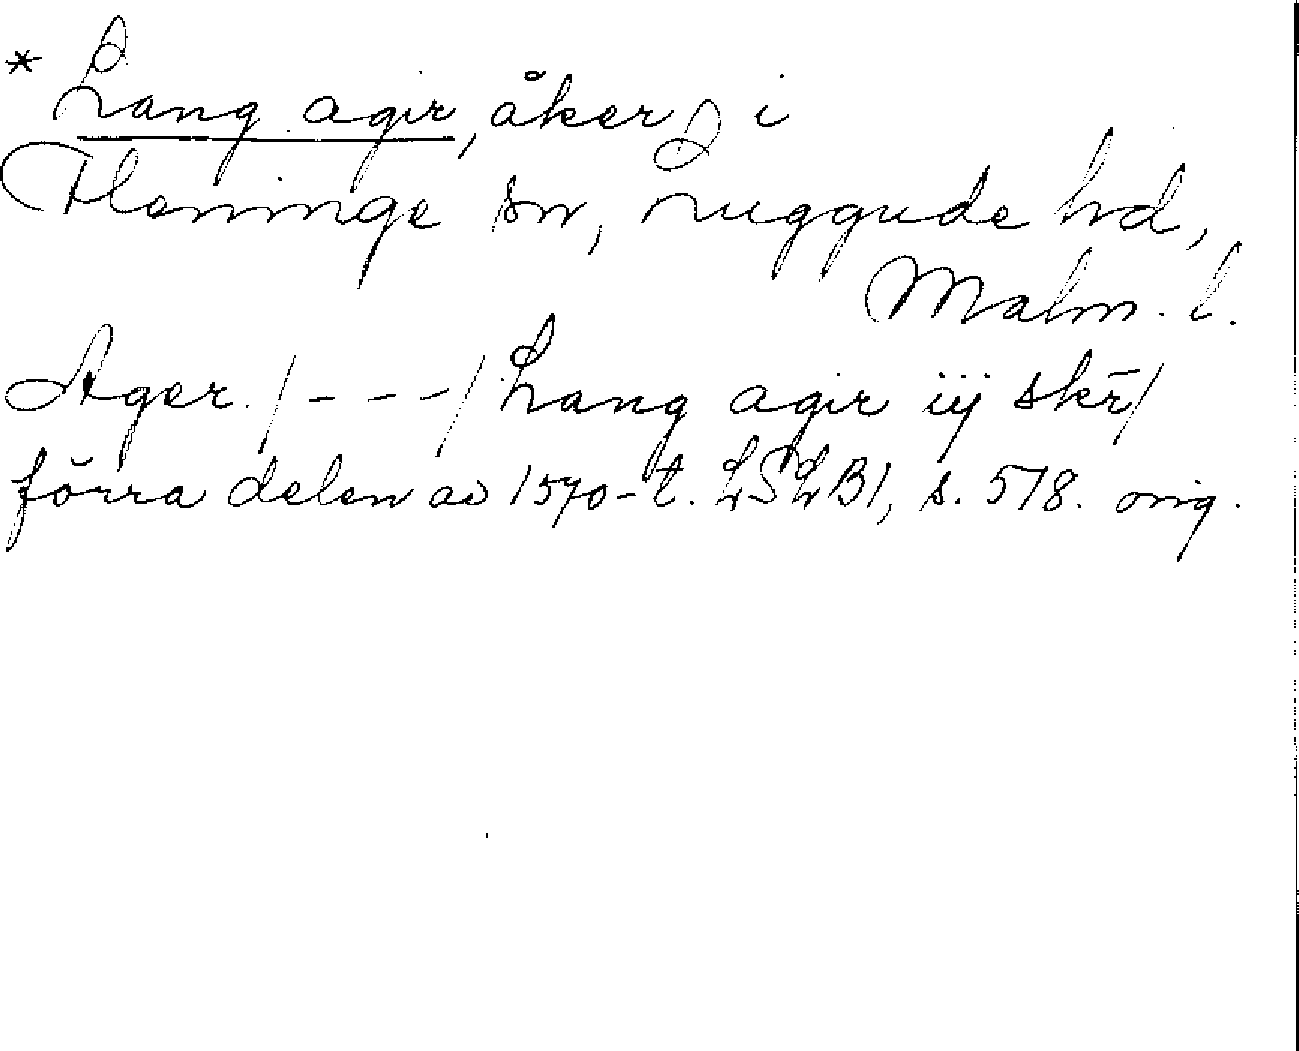 * Lang agir, åker i
Fleninge sn, Luggude hd,
Malm. l.
Ager. /---/ Lang agir iij skr̄/
förra delen av 1570-t. LSLB1, s. 578. orig.